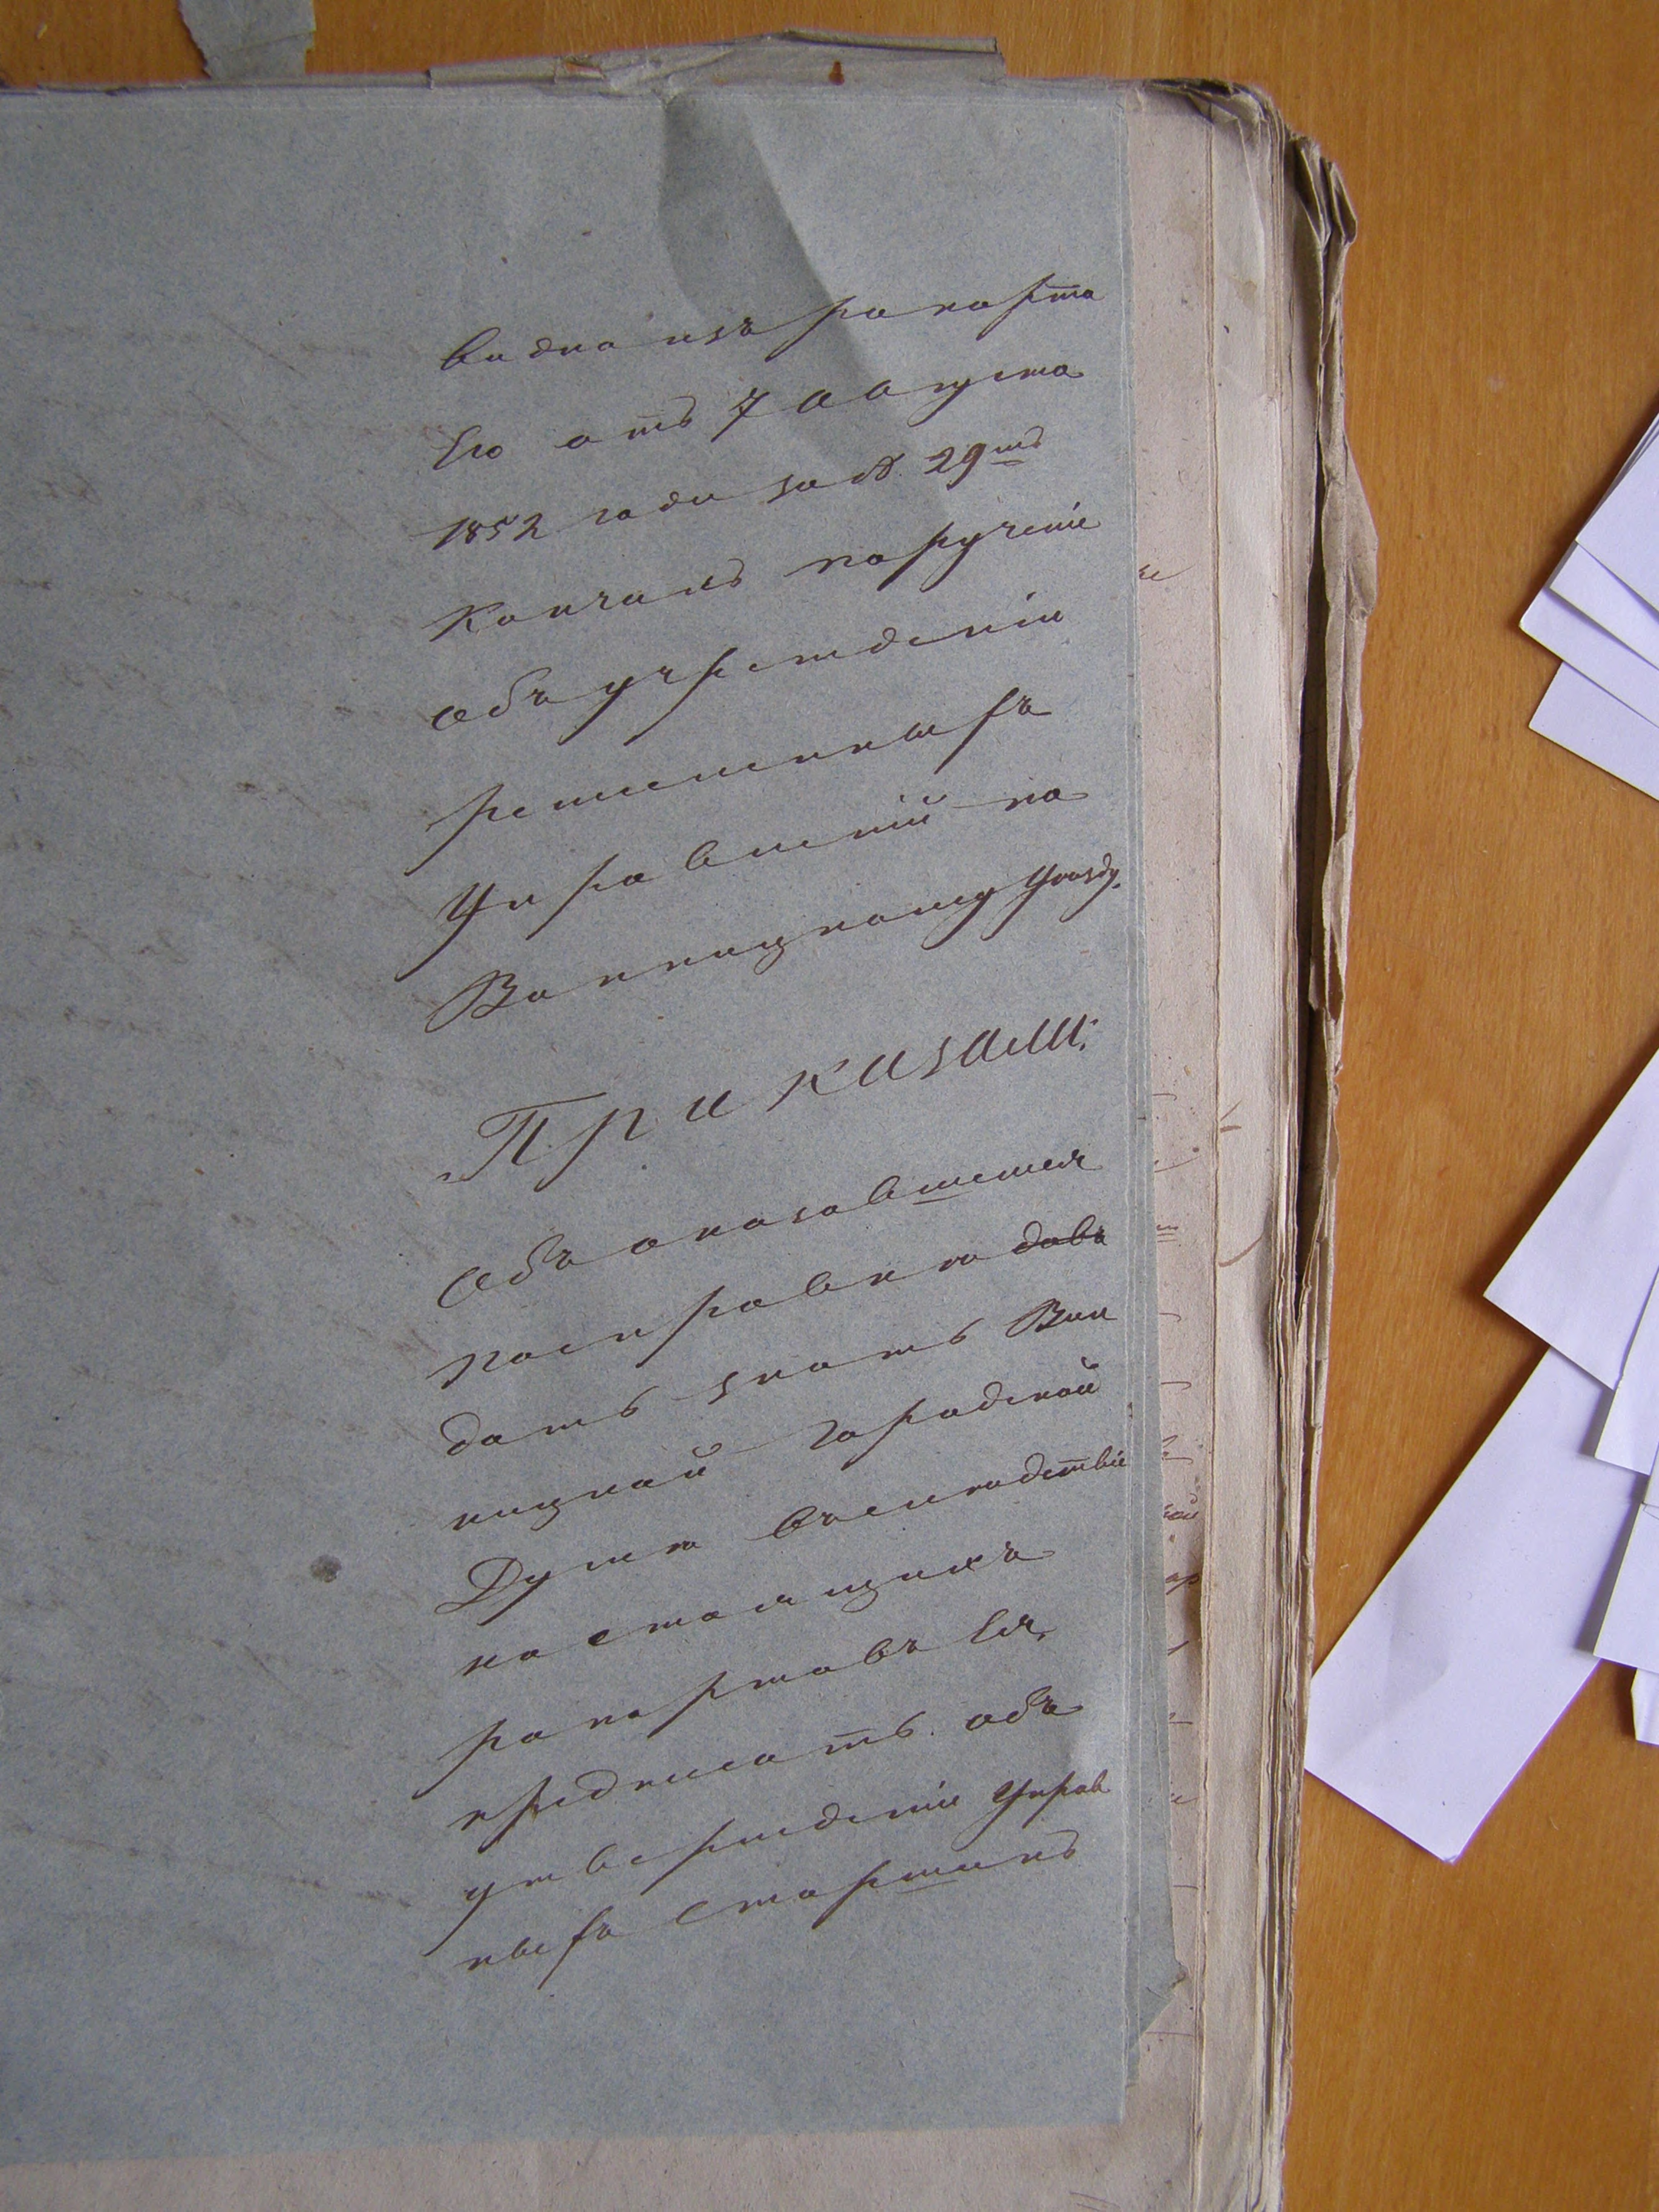 видно изъ рапорта
Его отъ 7 августа
1852 года за № 29мъ
Кончилъ порученіе
объ учрежденіи
ремесленныхъ
Управленій по
Винницкому Уезду.
Приказали:
Объ оказавшемся
по справке ~~давъ~~
дать знать Вин
ницкой городской
Думе въ последствіе
настоящихъ
рапортовъ Ея,
предписать объ
утвержденіи Управ
ныхъ Старшинъ